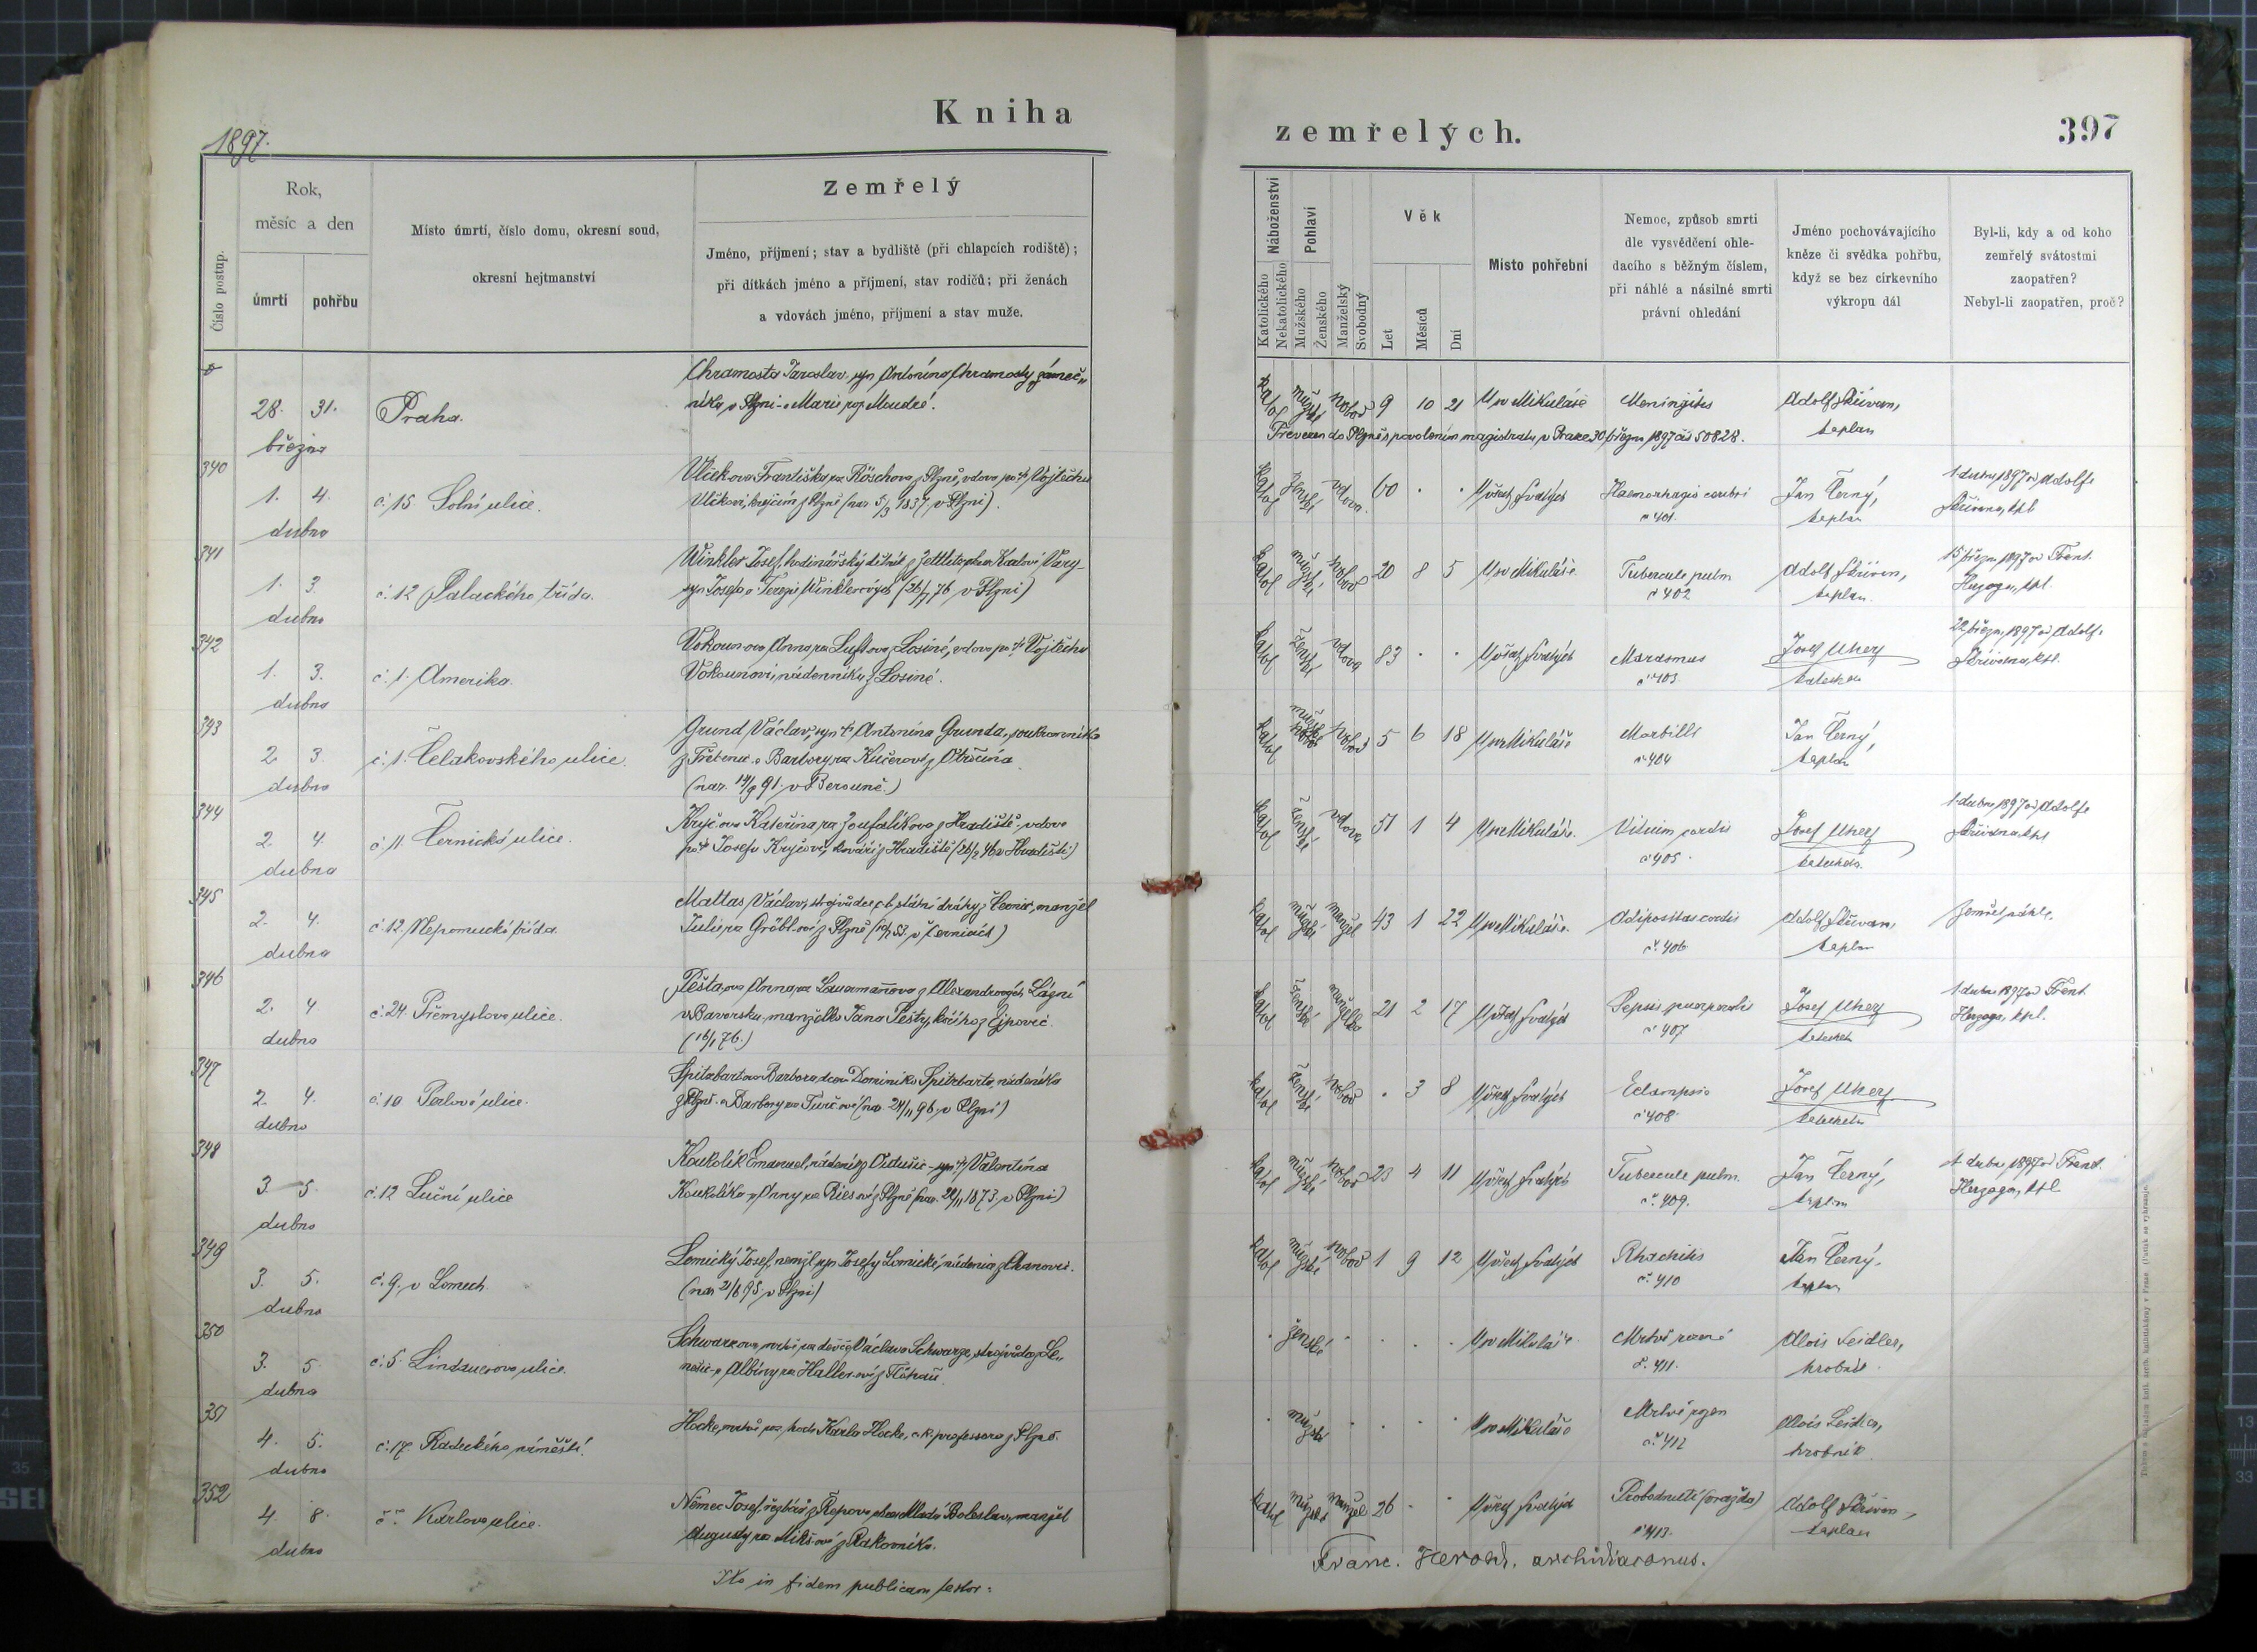 Kniha
zemřelých.
397
1897.
Číslo postup.
Rok,
měsíc a den
úmrtí
pohřbu
Místo úmrtí, číslo domu, okresní soud,
okresní hejtmanství
Zemřelý
Jméno, příjmení; stav a bydliště (při chlapcích rodiště);
při dítkách jméno a příjmení, stav rodičů; při ženách
a vdovách jméno, příjmení a stav muže.
Náboženství
Katolického
Nekatolického
Pohlaví
Mužského
Ženského
Manželský
Svobodný
Věk
Let
Měsíců
Dní
Místo pohřební
Nemoc, způsob smrti
dle vysvědčení ohle-
dacího s běžným číslem,
při náhlé a násilné smrti
právní ohledání
Jméno pochovávajícího
kněze či svědka pohřbu,
když se bez církevního
výkropu dál
Byl-li, kdy a od koho
zemřelý svátostmi
zaopatřen?
Nebyl-li zaopatřen, proč?
28. 31.
března
Praha.
Chramosta Jaroslav, syn Antonína Chramosty, zámeč„
níka v Plzni a Marie roz. Moudré.
katol mužské svobod 9 10 21 U sv Mikuláše Meningitis Adolf
kaplan
Převezen do Plzně s povolením magistratu v Praze 30 března 1897 čís 50828.
340
1. 4.
dubna
č. 15 Solní ulice.
Vlčkova Františka roz Röschova z Plzně, vdova po † Vojtěchu
Vlčkovi, krejčím z Plzně (nar 5/3 1837 v Plzni).
katol ženské vdova 60 U všech svatých Haemorhagie cerebri
č 401.
Jan Černý,
kaplan
1 dubna 1897 od Adolfa
341
1. 3.
dubna
č. 12 Palackého třída.
Winkler Josef, hodinářský
syn Josefa a Terezie Winklerových (26/7 76 v Plzni)
katol mužské svobod 20 8 5 U sv Mikuláše Tubercule pulm
č 402
Adolf
kaplan.
15 března 1897 od Frant.
Herzoga, kpl.
342
1. 3.
dubna
č. 1. Amerika.
Vokounova Anna roz Luftova z Losiné, vdova po † Vojtěchu
Vokounovi, nádenníku z Losiné.
katol ženské vdova 83 U všech svatých Marasmus
č 403.
Josef Uherz
katecheta
22 března 1897 od Adolfa
343
2. 3.
dubna
č. 1. Čelakovského ulice.
Grund Václav, syn † Antonína Grunda, soukromníka
z a Barbory roz Kučerové z Otročína
(nar. 14/9 91. v Berouně.)
katol mužské svobod 5 6 18 U sv Mikuláše Morbilli
č 404
Jan Černý,
kaplan
344
2. 4.
dubna
č. 11. Černická ulice.
Kryčova Kateřina roz Zoufalíkova z Hradiště, vdova
po † Josefu Kryčovi, kováři z Hradiště (26/2 46 v Hradišti)
katol ženské vdova 51 1 4 U sv Mikuláše. Vitium cordis
č 405.
Josef Uherz
katecheta.
1. dubna 1897 od Adolfa
345
2. 4.
dubna
č. 12 Nepomucká třída
Mattas Václav, strojvůdce státní dráhy z manžel
Julie roz Gröbl-ové z Plzně
katol mužské manžel 43 1 22 U sv Mikuláše. Adipositas cordis
č. 406
Adolf
kaplan
Zemřel náhle.
346
2. 4.
dubna
č. 24 Přemyslova ulice.
Peštaova Anna roz z Alexandrových Lázní
v Bavorsku, manželka Jana Pešty, kočího z Ejpovic
(16/1 76.)
katol ženské manželka 21 2 17 U všech svatých Sepsis puerperalis
č 407
Josef Uherz
katecheta
1 dubna 1897 od Frant.
Herzoga, kpl.
347
2. 4.
dubna
č. 10 Perlová ulice.
Spitzbartova Barbora, dcera Dominika Spitzbarta, nádeníka
z Plzně a Barbory roz Turč-ové (nar. 24/11 96 v Plzni)
katol ženské svobod 3 8 U všech svatých Eclampsie
č 408
Josef Uherz
katecheta
348
3. 5.
dubna
č. 12 Luční ulice
Koukolík Emanuel, nádeník syn † Valentina
Koukolíka a Anny roz Ries-ové z Plzně (nar. 22/11 1873 v Plzni)
katol mužské svobod 23 4 11 U všech svatých Tubercule pulm.
č. 409.
Jan Černý,
kaplan
dubna 1897 od Frant.
Herzoga, kpl
349
3. 5.
dubna
č. 9. v Lomech
Lomický Josef, nemžl. syn Josefy Lomické, nádenice z Chanovic.
(nar 21/6 95 v Plzni)
katol mužské svobod 1 9 12 U všech svatých Rhachitis
č. 410
Jan Černý,
kaplan
350
3. 5.
dubna
č. 5. Lindauerova ulice.
Schwarzova, mrtvě roz děvče Václava Schwarze, strojvůdce
a Albíny roz Haller-ové z
ženské U sv Mikuláše Mrtvě rozené
č. 411.
Alois Seidler,
hrobník.
351
4. 5.
dubna
č. 17. Radeckého náměstí.
Hocke, mrtvě roz. hoch Karla Hocke, c. k. professora z Plzně.
mužské U sv Mikuláše Mrtvě rozen
č. 412
Alois Seidler,
hrobník
352
4. 8.
dubna
č. Karlova ulice.
Němec Josef, řezbář z Řepova okres Mladá Boleslav, manžel
Augusty roz Mikš-ové z Rakovníka.
katol mužské manžel 26 U všech svatých Probodnutí (vražda)
č 413.
Adolf
kaplan
Ita in fidem publicam testor:
Franc. Herold. archidiaconus.